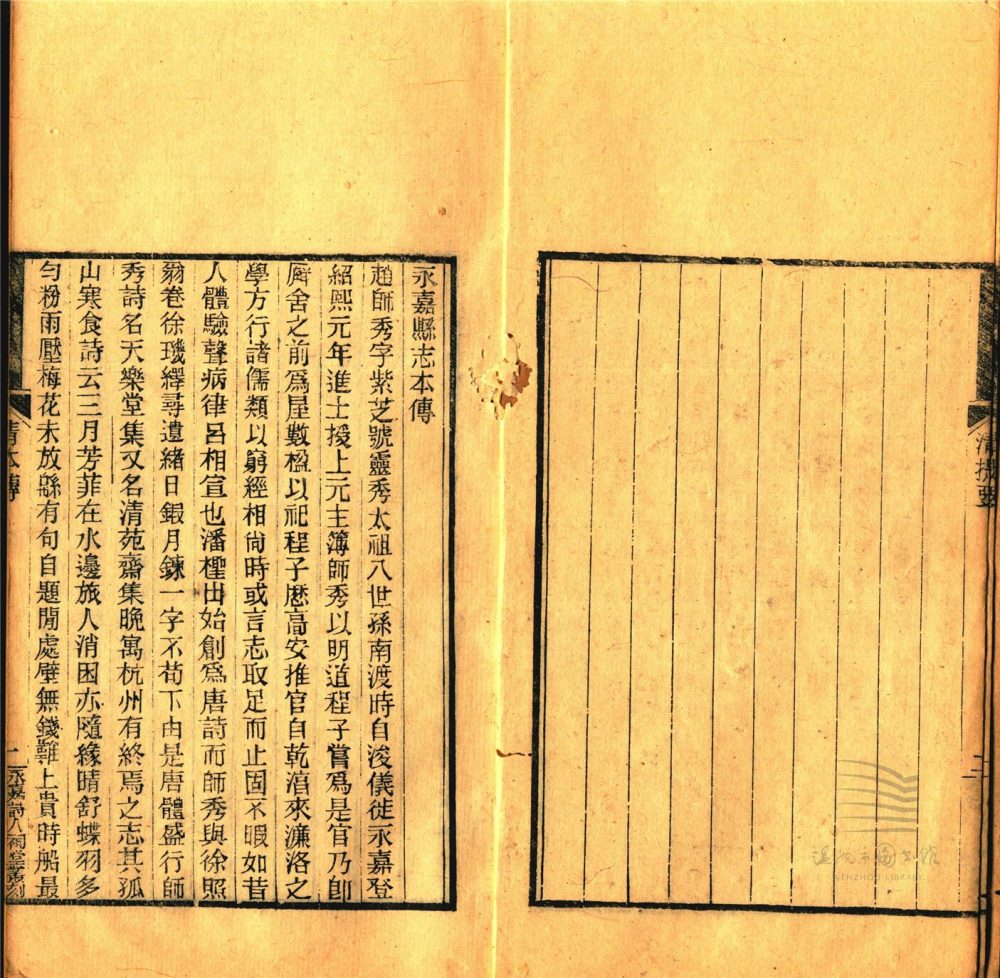 永嘉縣志本傳
趙師秀字紫芝號靈秀太祖八世孫南渡時自浚儀徙永嘉登
紹熙元年進士授上元主簿師秀以明道程子嘗爲是官乃卽
廨舍之前爲屋數楹以祀程子歷高安推官自乾淳來濂洛之
學方行諸儒類以窮經相尙時或言志取足而止固不暇如昔
人體驗聲病律呂相宣也潘檉出始創爲唐詩而師秀與徐照
翁卷徐璣繹尋遺緒日鍛月鍊一字不苟下由是唐體盛行師
秀詩名天樂堂集又名清苑齋集晚寓杭州有終焉之志其孤
山寒食詩云三月芳菲在水邊旅人消困亦隨緣晴舒蝶羽多
勻粉雨壓梅花未放緜有句自題閒處壁無錢難上貴時船最
清本傳
二
永嘉詩人祠堂叢刻
WENZHOU LIBRARY